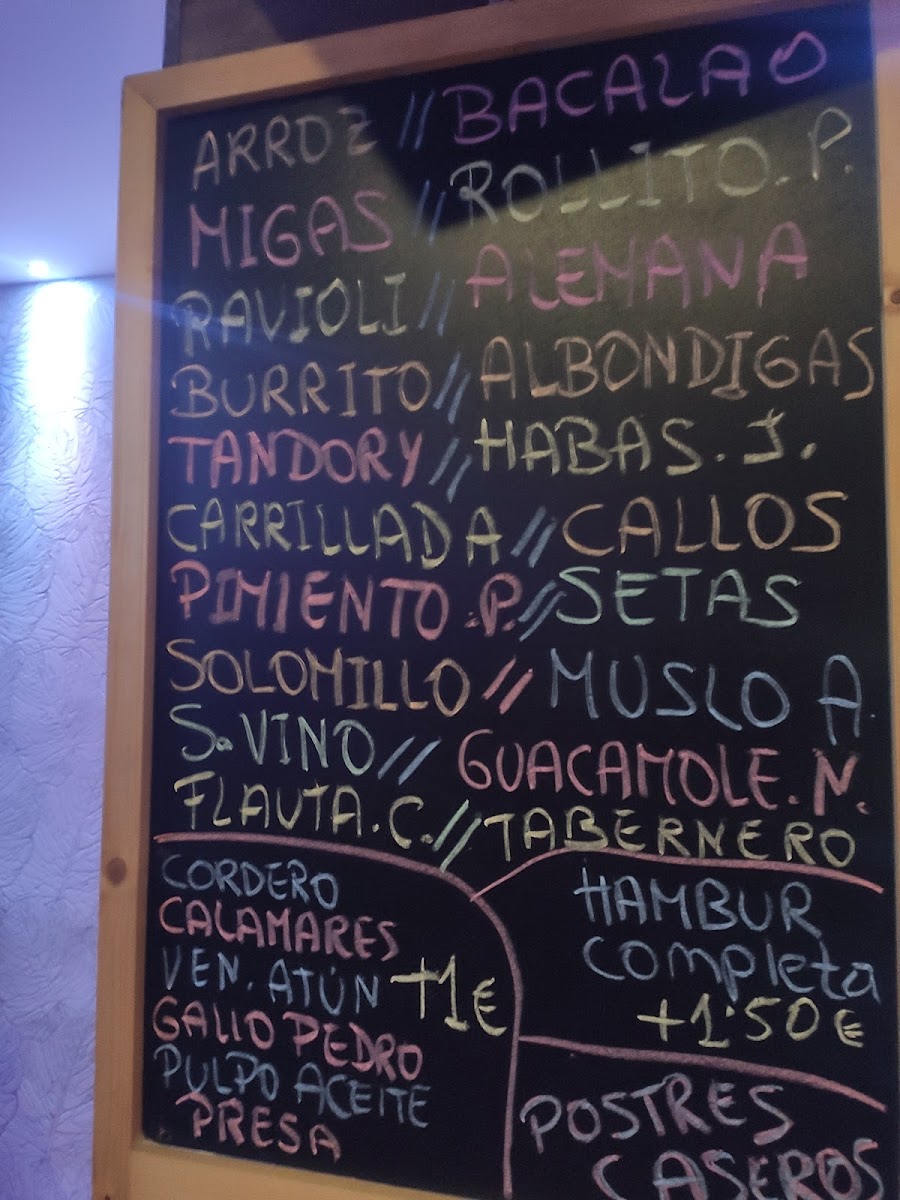 ARROZ // BACALAO
MIGAS // ROLLITO.P.
RAVIOLI // ALEMANA
BURRITO // ALBONDIGAS
TANDORY // HABAS.J.
CARRILLADA // CALLOS
PIMIENTO.P. // SETAS
SOLOMILLO // MUSLO A.
S. VINO // GUACAMOLE.N.
FLAUTA.C. // TABERNERO
CORDERO
CALAMARES
VEN. ATÚN +1€
GALLO PEDRO
PULPO ACEITE
PRESA
HAMBUR
completa
+1'50€
POSTRES
CASEROS